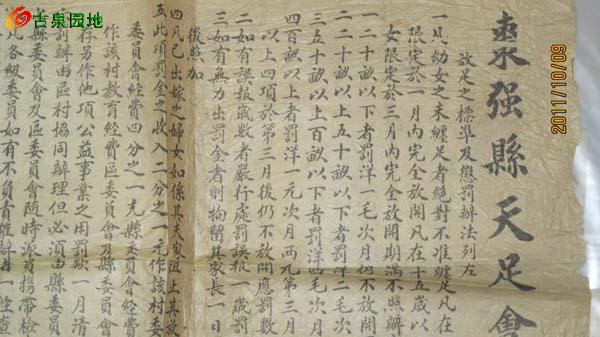 古泉园地
2011/10/09
棗强縣天足會
放足之標準及懲罰辦法列左
一凡幼女之未纏足者絕對不准纏足凡在
限定於一月內完全放開凡在十五歲以
女限定於三月內完全放開期滿不照辦
一二十畝以下者罰洋一毛次月仍不放開
二二十畝以上五十畝以下者罰洋二毛次
三五十畝以上百畝以下者罰洋四毛次月
四百畝以上者罰洋一元次月兩元第三月
以上四項於第三月後仍不放開應罰數
二如有誤報歲數者嚴行處罰誤報一歲罰
三如有無力出罰金者則拘留其家長一日
後照加
四凡已出嫁之婦女如係其夫家阻止其放
五此項罰金之收入二分之一充作該村委
委員會經費四分之一充縣委員會經費
作該村教育經費區委員會及縣委員會
存另作他項公益事業之用罰款一月清
罰辦由區村協同辦理但必須由縣委員
縣委員會及區委員會隨時派員携帶檢
凡各級委員如有不負責推辭者一經查